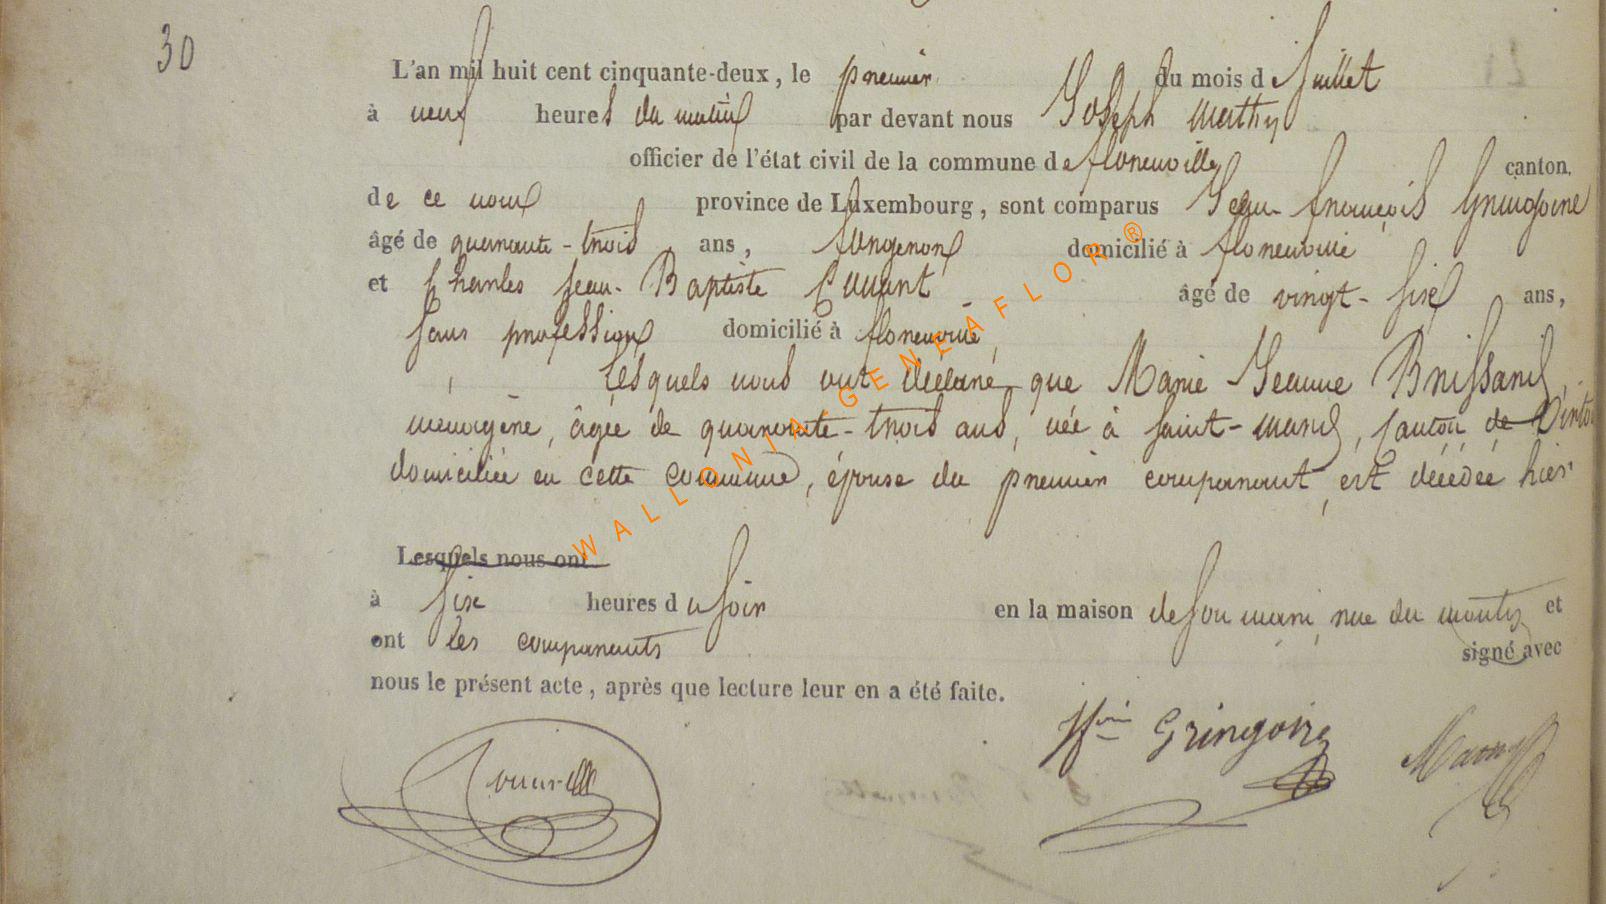 30
L'an mil huit cent cinquante-deux, le premier du mois de Juillet
à neuf heures du matin par devant nous Joseph Mathy
officier de l'état civil de la commune de florenville canton
de ce nom province de Luxembourg, sont comparus Jean-françois Gringoire
âgé de quarante-trois ans, forgeron domicilié à florenville
et Charles Jean-Baptiste âgé de vingt-six ans,
sans profession domicilié à florenville,
Lesquels nous ont déclaré que Marie Jeanne Brissard,
ménagère, âgée de quarante-trois ans, née à Saint-mard, canton de Virton
domiciliée en cette commune, épouse du premier comparant, est décédée hier
Lesquels nous ont
à six heures du soir en la maison de son mari, rue du et
ont les comparants signé avec
nous le présent acte, après que lecture leur en a été faite.
Gringoire
WALLONIA-GENEAFLOR®